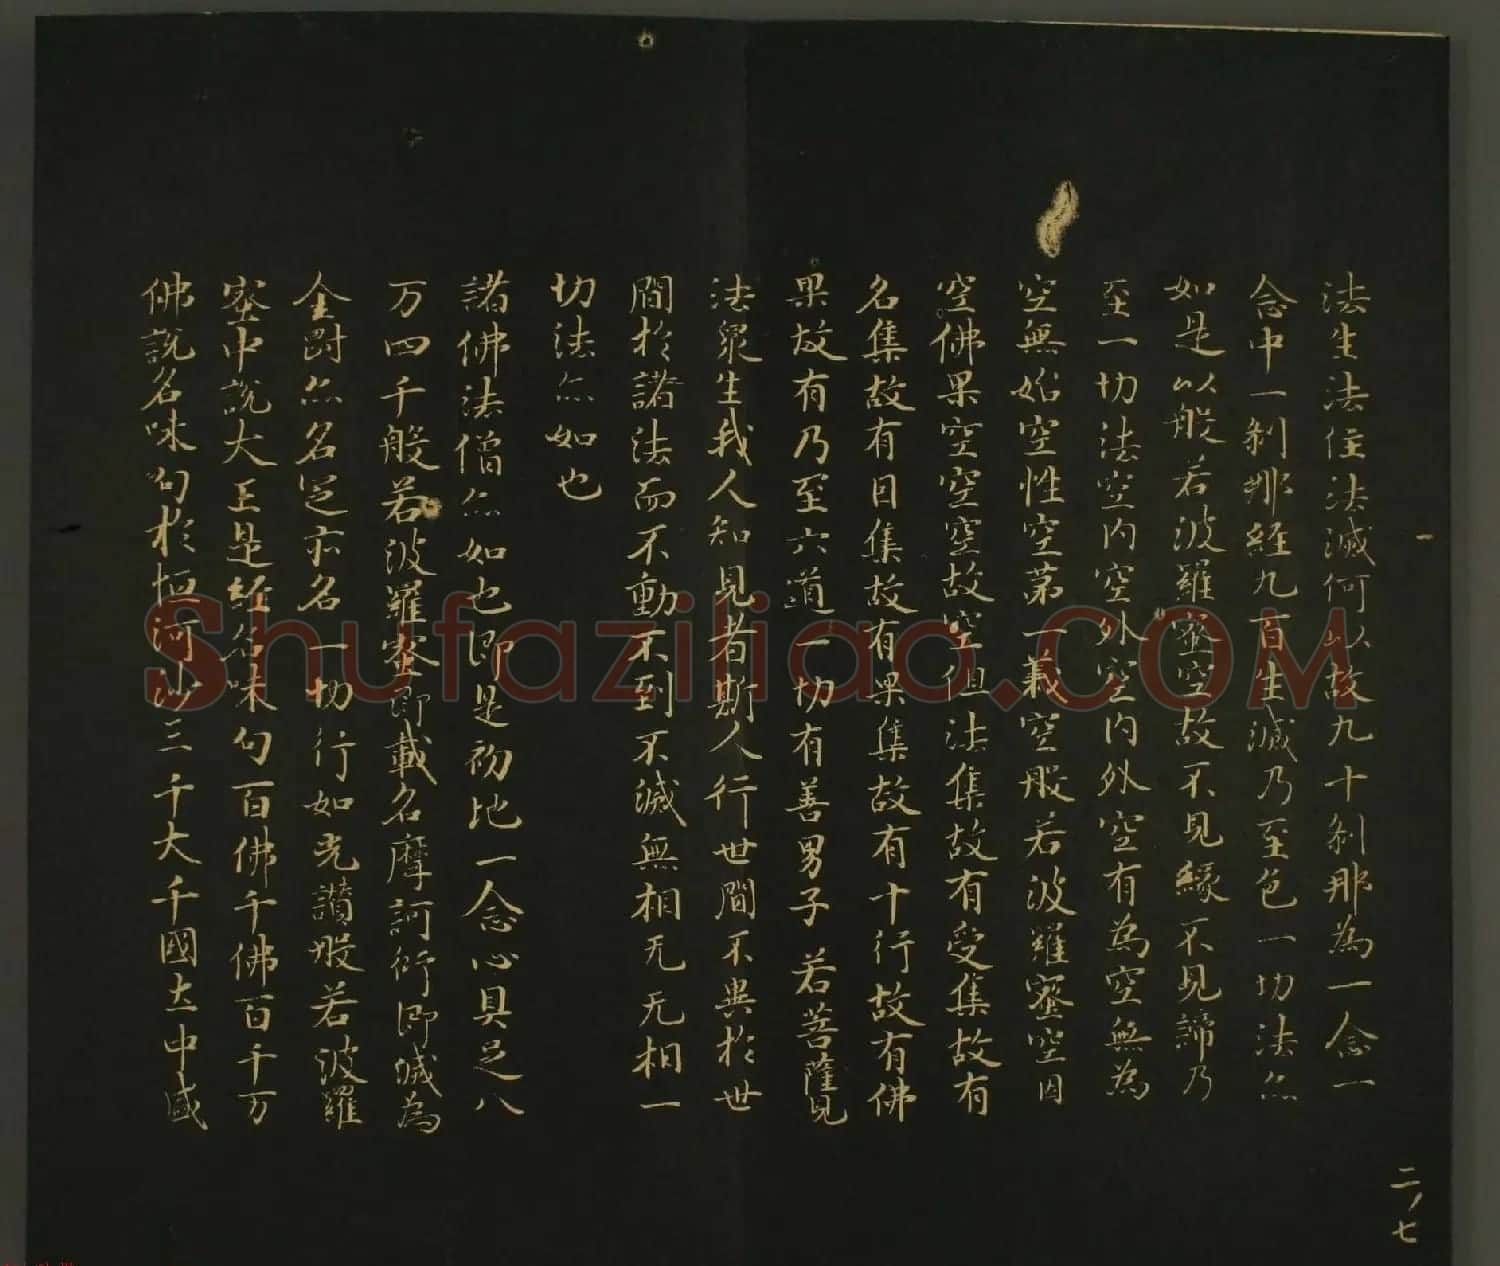 法生法住法滅何以故九十刹那為一念一
念中一刹那経九百生滅乃至色一切法亦
如是以般若波羅蜜空故不見縁不見諦乃
至一切法空內空外空內外空有為空無為
空無始空性空苐一義空般若波羅蜜空因
空佛果空空空故空但法集故有受集故有
名集故有因集故有果集故有十行故有佛
果故有乃至六道一切有善男子若菩薩見
法衆生我人知見者斯人行世間不異於世
間於諸法而不動不到不滅無相无无相一
切法亦如也
諸佛法僧亦如也即是初地一念心具足八
万四千般若波羅蜜即載名摩訶衍即滅為
金剛亦名定亦名一切行如光讃般若波羅
蜜中說大王是経名味句百佛千佛百千万
佛說名味句於恒河沙三千大千國土中盛
二ノ七
Shufaziliao.COM